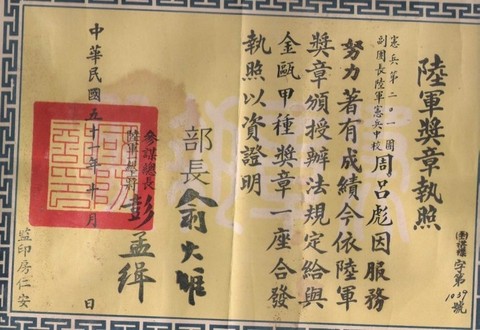 陸軍獎章執照
憲兵第二〇一團
副團長陸軍憲兵中校
周呂彪因服務
努力著有成績今依陸軍
獎章頒授辦法規定給與
金甌甲種獎章一座合發
執照以資證明
部長俞大維
參謀總長
陸軍
上將
彭孟緝
中華民國五十一年十月 日
監印房仁安
字第1039號